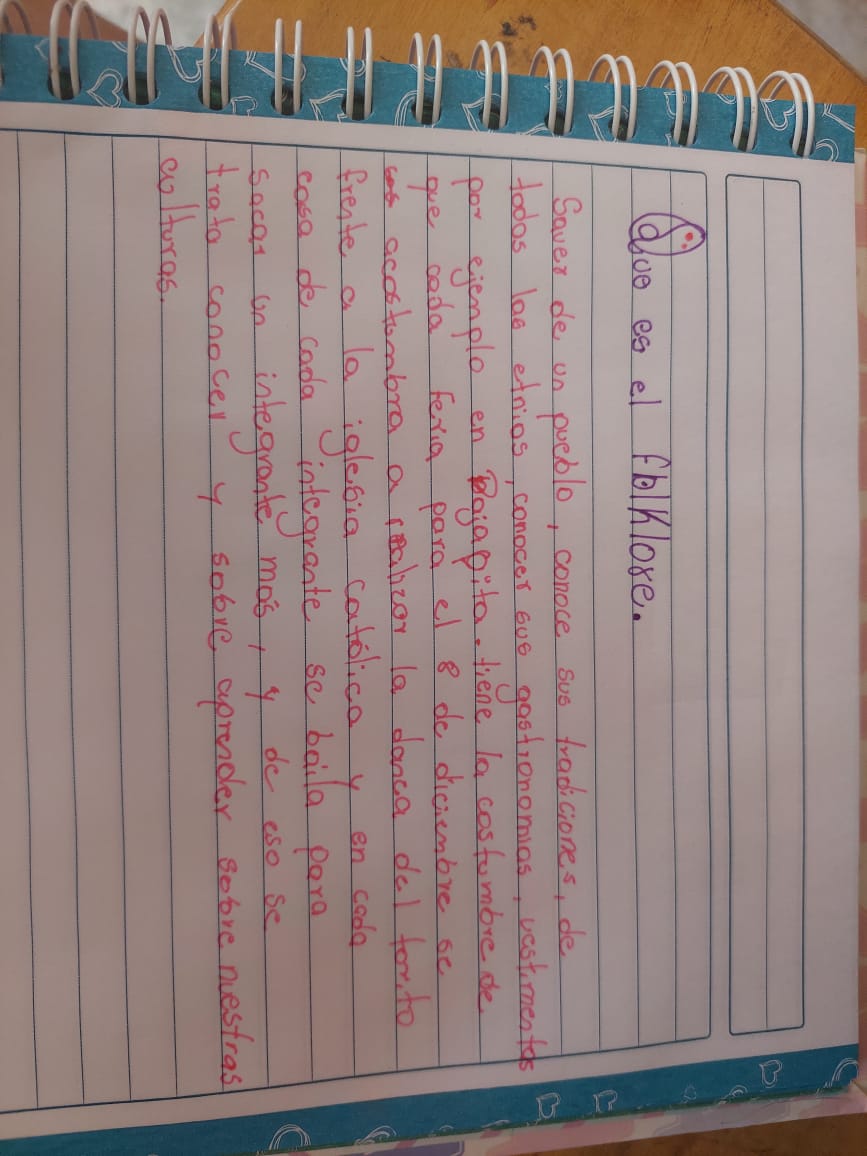 Que es el folklore.
Saver de un pueblo, conoce sus tradiciones, de
todas las etnias, conocer sus gastronomias, vestimentas
por ejenplo en Pajapita. tiene la costumbre de
que cada feria para el 8 de diciembre se
acostumbra a realizar la danca del torito
frente a la iglesia católica y en cada
casa de cada integrante se baila para
sacar un integrante mas, y de eso se
trata conocer y sobre aprender sobre nuestras
culturas.